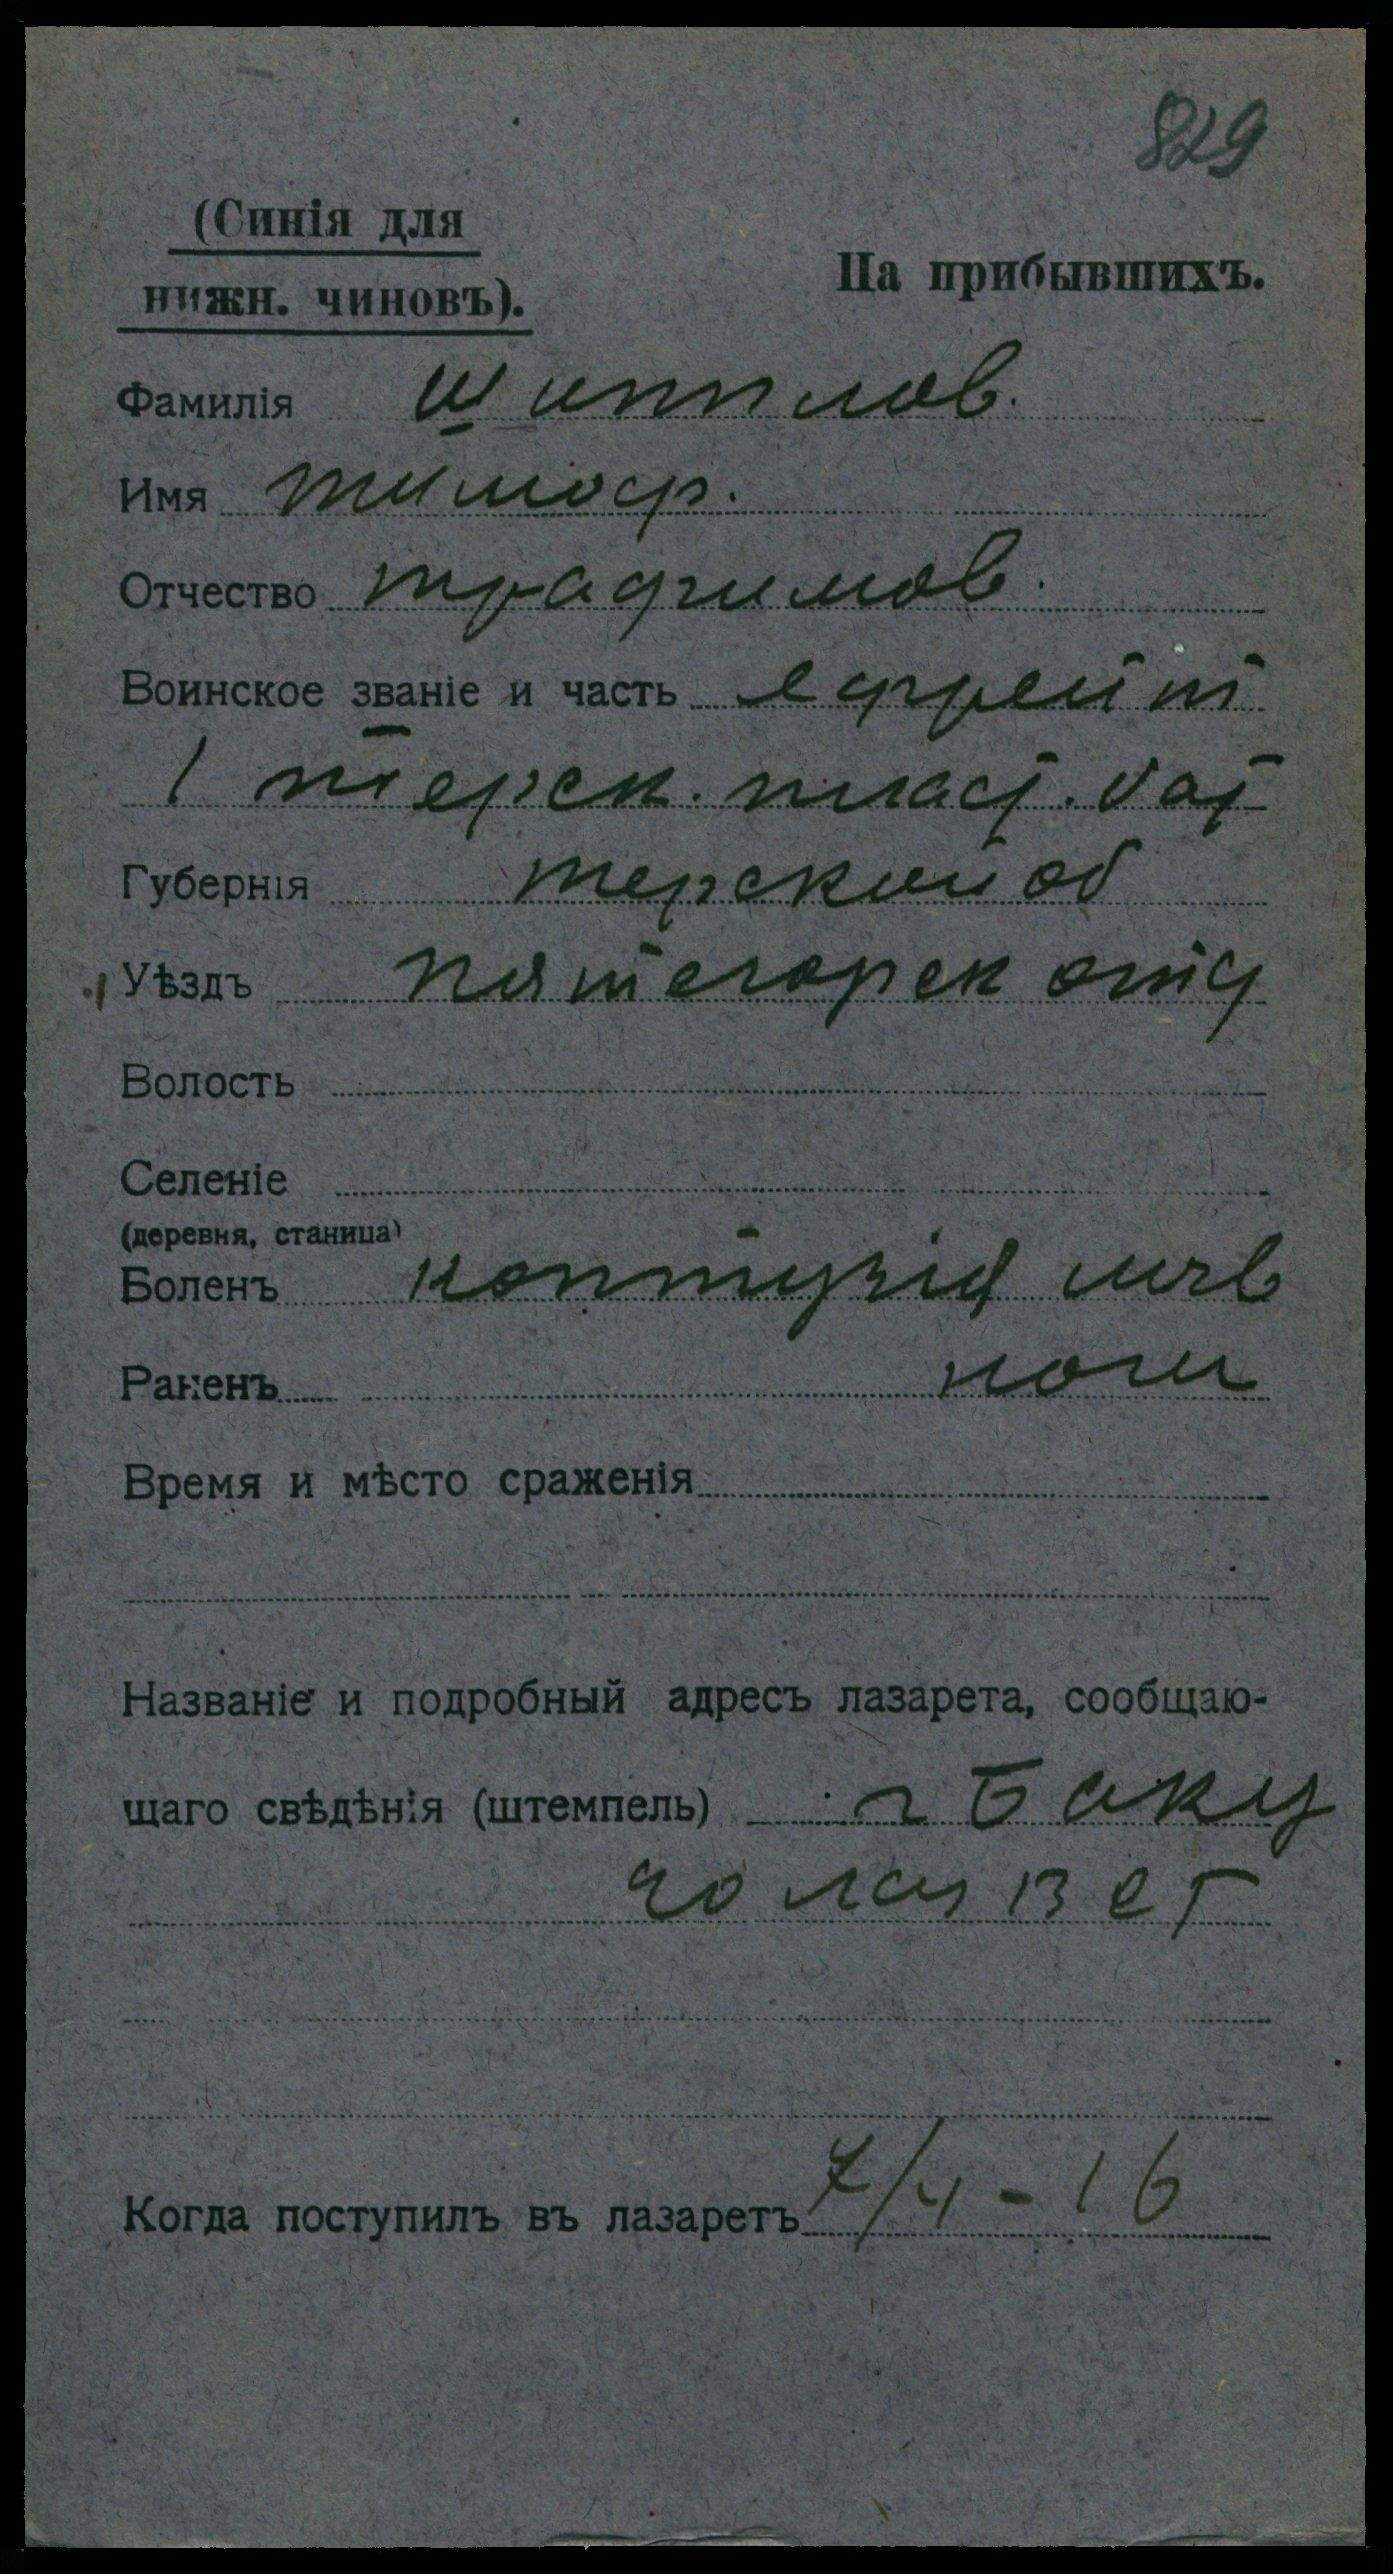 829
(Синія для
нижн. чиновъ).
На прибывшихъ.
Фамилія
Имя тимоф.
Отчество трафимов.
Воинское званіе и часть ефрейт
1 терск. пласт. бат
Губернія терской об
Уѣздъ пятегорск отд
Волость
Селеніе
(деревня, станица)
Боленъ контузія
Раненъ
Время и мѣсто сраженія
Названіе и подробный адресъ лазарета, сообщаю-
щаго свѣдѣнія (штемпель) г Баку
Когда поступилъ въ лазаретъ 7/4-16